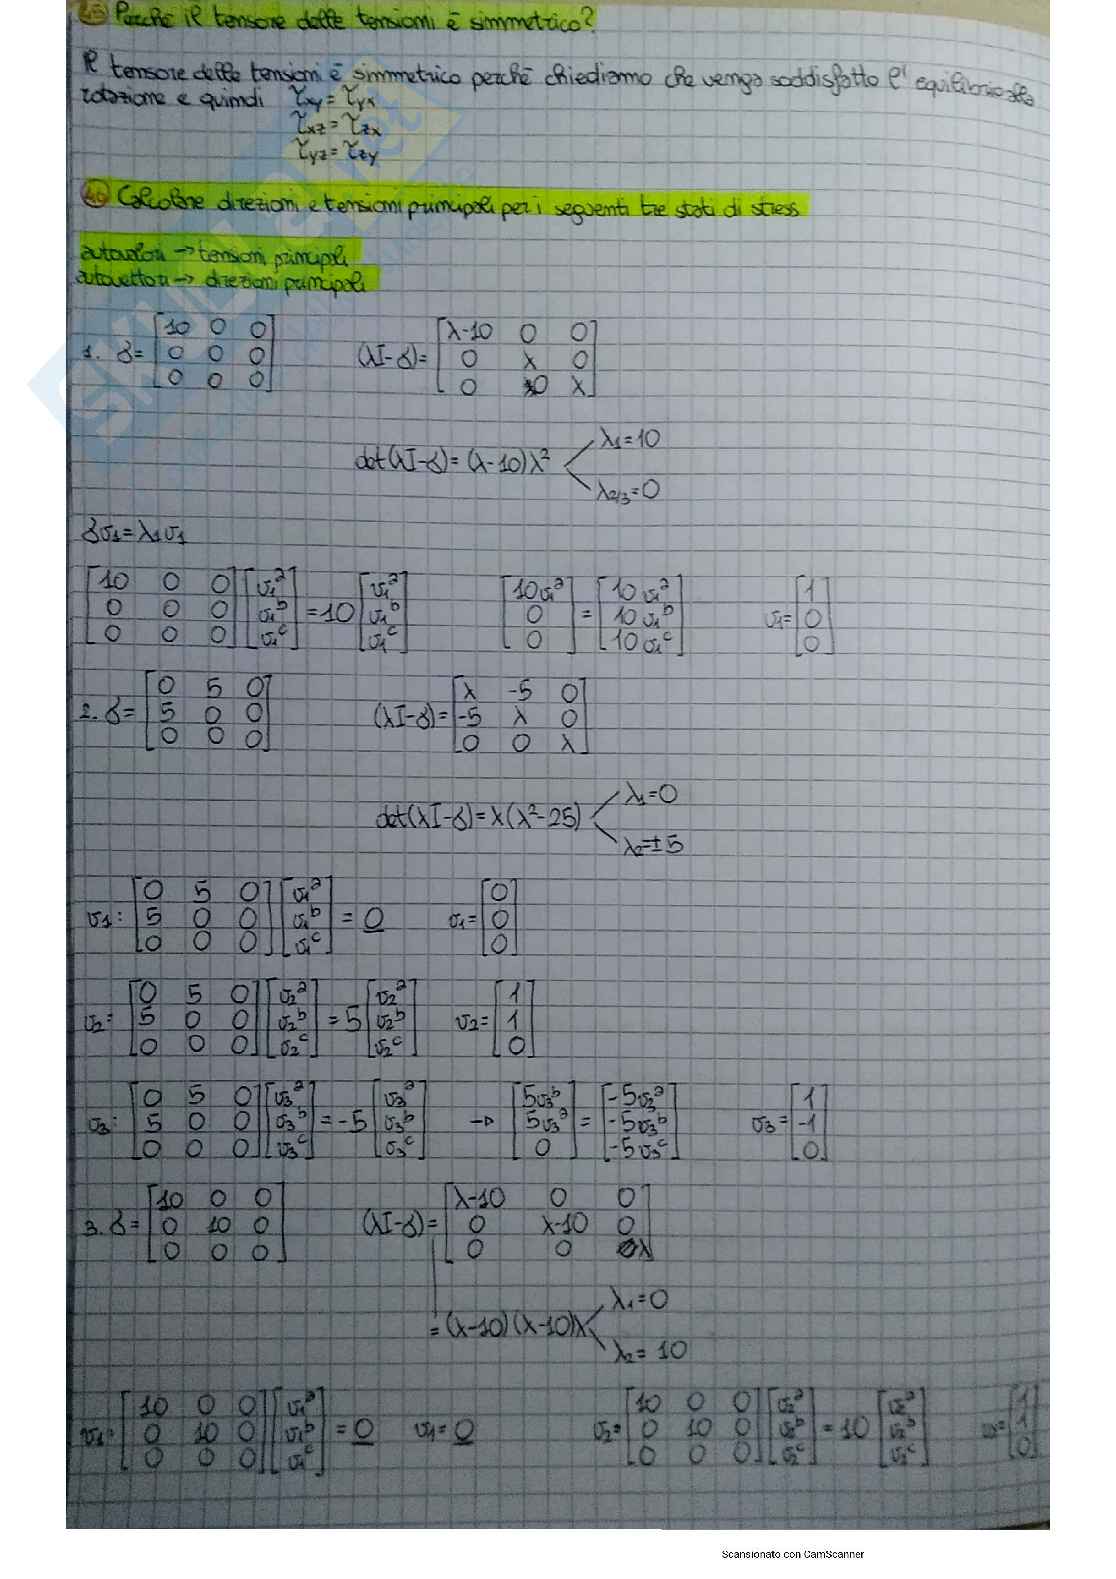 Perché il tensore delle tensioni è simmetrico?
Il tensore delle tensioni è simmetrico perché chiediamo che venga soddisfatto l'equilibrio alla
rotazione e quindi τxy = τyx
τxz = τzx
τyz = τzy
Calcolare direzioni e tensioni principali per i seguenti tre stati di stress
autovalori → tensioni principali
autovettori → direzioni principali
1. σ = [10 0 0; 0 0 0; 0 0 0] (λI-σ) = [λ-10 0 0; 0 λ 0; 0 0 λ]
det(λI-σ) = (λ-10)λ²
λ1 = 10
λ2/3 = 0
σv1 = λ1v1
[10 0 0; 0 0 0; 0 0 0] [v1a; v1b; v1c] = 10 [v1a; v1b; v1c] [10v1a; 0; 0] = [10v1a; 10v1b; 10v1c] v1 = [1; 0; 0]
2. σ = [0 5 0; 5 0 0; 0 0 0] (λI-σ) = [λ -5 0; -5 λ 0; 0 0 λ]
det(λI-σ) = λ(λ²-25)
λ1 = 0
λ2 = ±5
v1: [0 5 0; 5 0 0; 0 0 0] [v1a; v1b; v1c] = 0 v1 = [0; 0; 0]
v2: [0 5 0; 5 0 0; 0 0 0] [v2a; v2b; v2c] = 5 [v2a; v2b; v2c] v2 = [1; 1; 0]
v3: [0 5 0; 5 0 0; 0 0 0] [v3a; v3b; v3c] = -5 [v3a; v3b; v3c] → [5v3b; 5v3a; 0] = [-5v3a; -5v3b; -5v3c] v3 = [1; -1; 0]
3. σ = [10 0 0; 0 10 0; 0 0 0] (λI-σ) = [λ-10 0 0; 0 λ-10 0; 0 0 λ]
= (λ-10)(λ-10)λ
λ1 = 0
λ2 = 10
v1: [10 0 0; 0 10 0; 0 0 0] [v1a; v1b; v1c] = 0 v1 = 0 v2 = [10 0 0; 0 10 0; 0 0 0] [v2a; v2b; v2c] = 10 [v2a; v2b; v2c] [1; 1; 0]
Scansionato con CamScanner